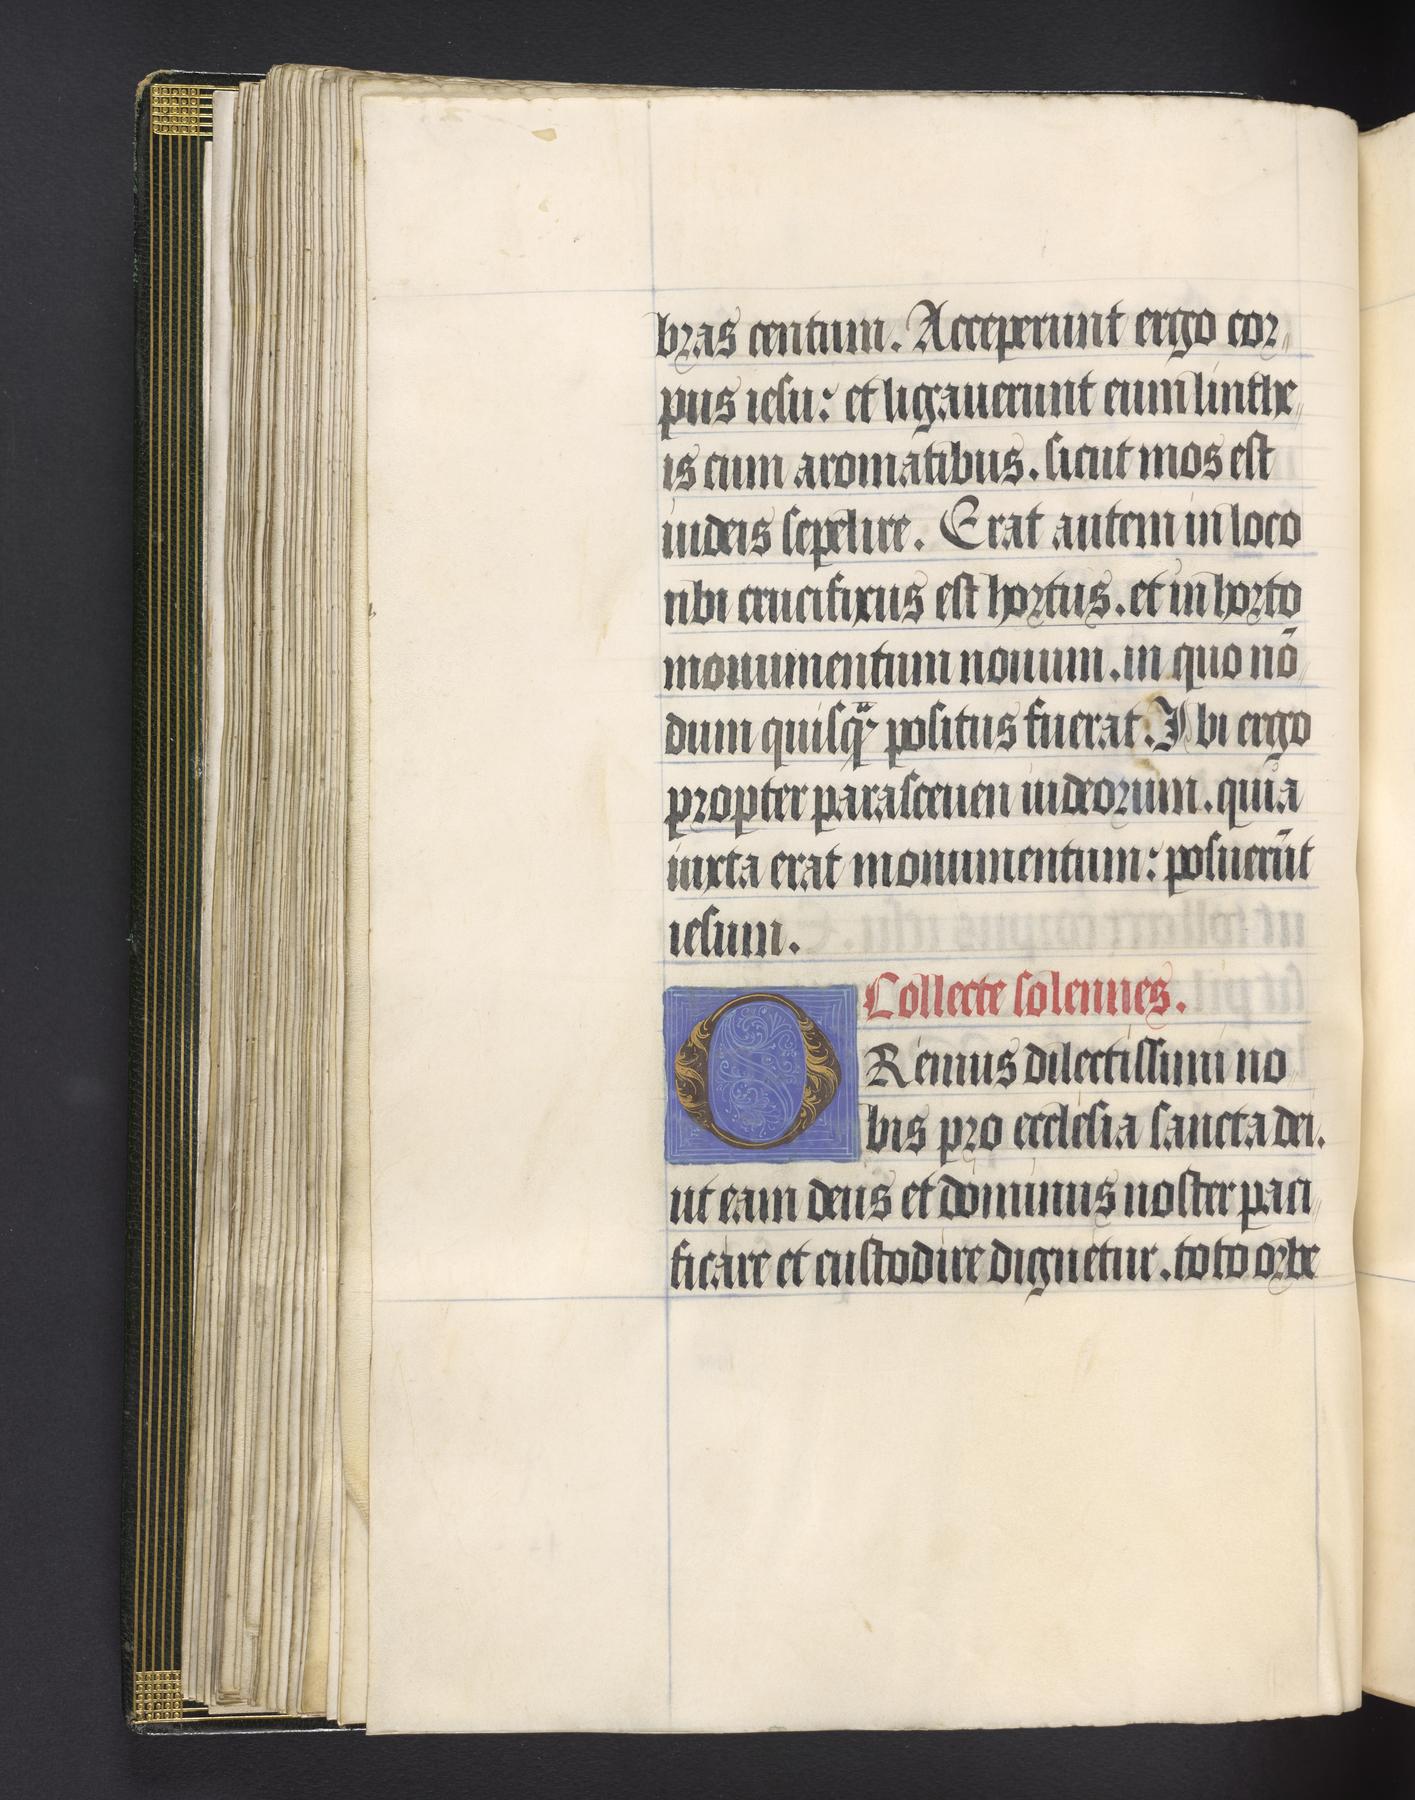 bras centum. Acceperunt ergo cor„
pus iesu: et ligauerunt eum linthe„
is cum aromatibus. sicut mos est
iudeis sepelire. Erat autem in loco
ubi crucifixus est hortus. et in horto
monumentum nouum. in quo nō„
dum quisqᷓ positus fuerat. Ibi ergo
propter parasceuen iudeorum. quia
iuxta erat monumentum: posuerūt
iesum.
Collecte solennes.
ORemus dilectissimi no„
bis pro ecclesia sancta dei.
ut eam deus et dominus noster paci„
ficare et custodire dignetur. toto orbe